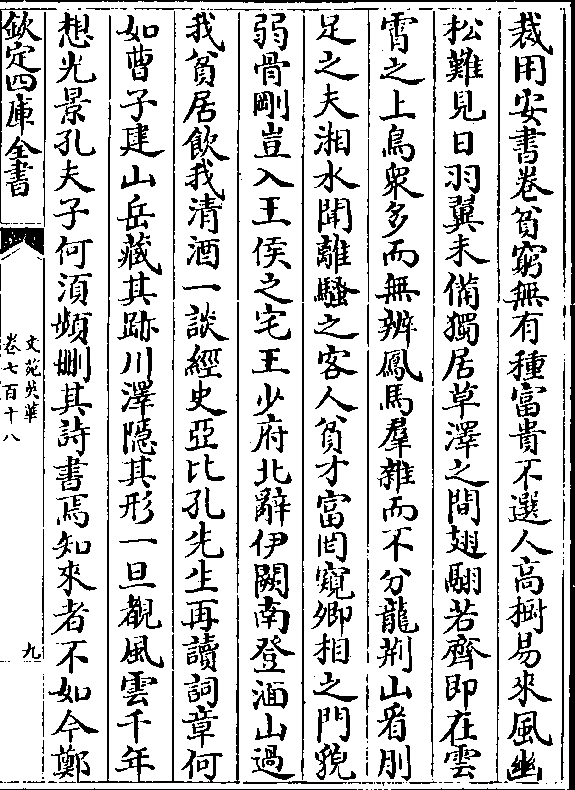 裁用安書卷貧窮無有種富貴不選人高樹易來風幽
松難見日羽翼未備獨居草澤之間翅翮若齊即在雲
霄之上鳥衆多而無辨鳳馬羣雜而不分龍荆山看刖
足之夫湘水聞離騷之客人貧才富罔窺卿相之門貌
弱骨剛豈入王侯之宅王少府北辭伊闕南登湎山過
我貧居飲我清酒一談經史亞比孔先生再讀詞章何
如曹子建山岳藏其跡川澤隠其形一旦覩風雲千年
想光景孔夫子何須頻刪其詩書焉知來者不如今鄭
欽定四庫全書
文苑英華
卷七百十八
九